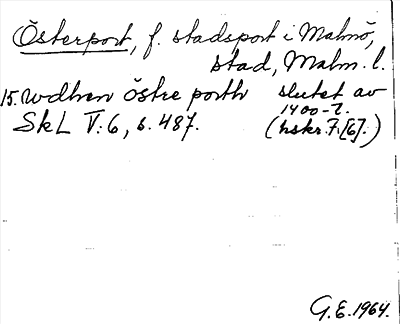 Österport, f. stadsport i Malmö,
stad, Malm. l.
15. wdhen östre porth slutet av
1400-t.
SkL V:6, s. 487. (hskr. F. [6].)
G.E. 1964.